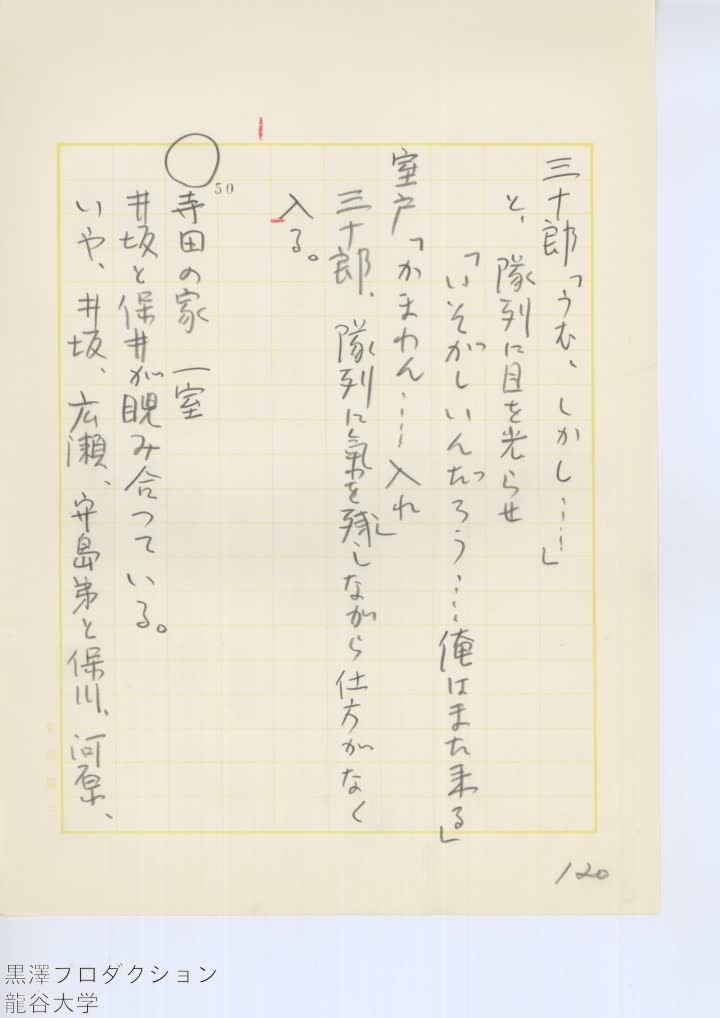 三十郎「うむ、しかし……」
と、隊列に目を光らせ
「いそがしいんだろう……俺はまた来る」
室戸「かまわん……入れ」
三十郎、隊列に氣を残しながら仕方がなく
入る。
50
寺田の家 一室
井坂と保井が睨み合つている。
いや、井坂、広瀬、守島弟と保川、河原、
120
黒澤プロダクション
龍谷大学